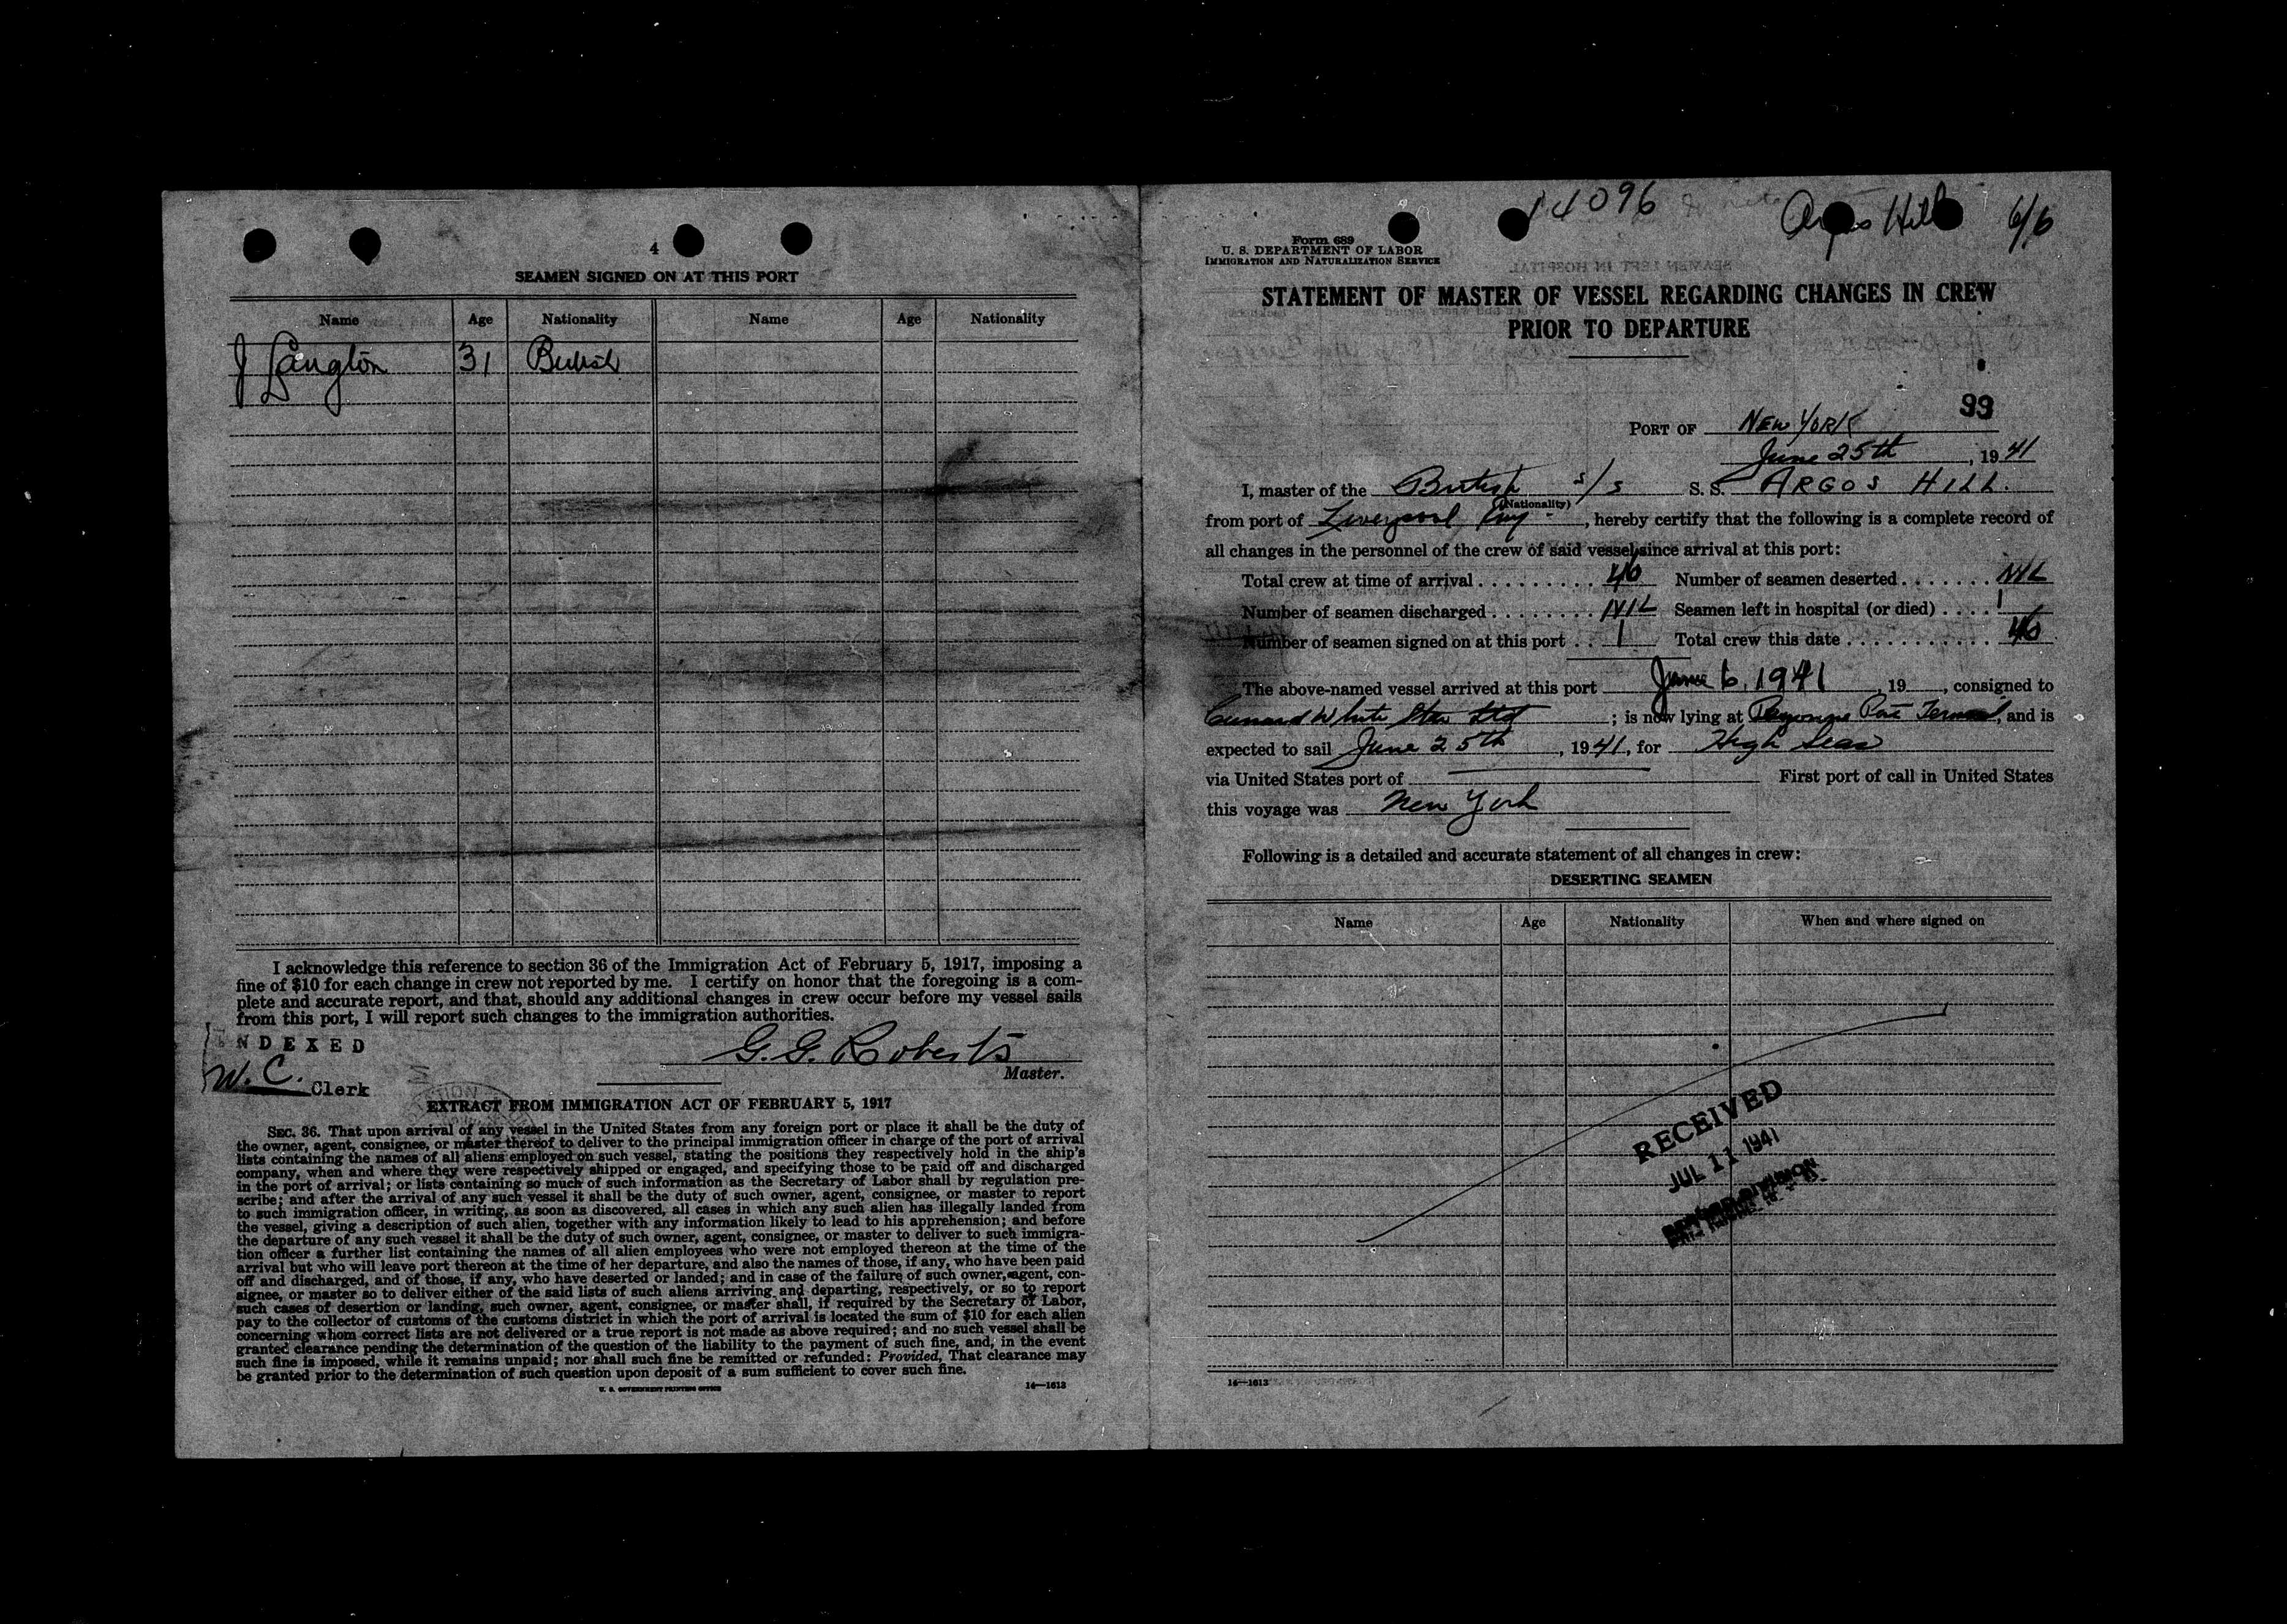 4
SEAMEN SIGNED ON AT THIS PORT
Name Age Nationality Name Age Nationality
J Langton 31 British
I acknowledge this reference to section 36 of the Immigration Act of February 5, 1917, imposing a
fine of $10 for each change in crew not reported by me. I certify on honor that the foregoing is a com-
plete and accurate report, and that, should any additional changes in crew occur before my vessel sails
from this port, I will report such changes to the immigration authorities.
INDEXED
W. C. Clerk
G. G. Roberts
Master.
EXTRACT FROM IMMIGRATION ACT OF FEBRUARY 5, 1917
SEC. 36. That upon arrival of any vessel in the United States from any foreign port or place it shall be the duty of
the owner, agent, consignee, or master thereof to deliver to the principal immigration officer in charge of the port of arrival
lists containing the names of all aliens employed on such vessel, stating the positions they respectively hold in the ship's
company, when and where they were respectively shipped or engaged, and specifying those to be paid off and discharged
in the port of arrival; or lists containing so much of such information as the Secretary of Labor shall by regulation pre-
scribe; and after the arrival of any such vessel it shall be the duty of such owner, agent, consignee, or master to report
to such immigration officer, in writing, as soon as discovered, all cases in which any such alien has illegally landed from
the vessel, giving a description of such alien, together with any information likely to lead to his apprehension; and before
the departure of any such vessel it shall be the duty of such owner, agent, consignee, or master to deliver to such immigra-
tion officer a further list containing the names of all alien employees who were not employed thereon at the time of the
arrival but who will leave port thereon at the time of her departure, and also the names of those, if any, who have been paid
off and discharged, and of those, if any, who have deserted or landed; and in case of the failure of such owner, agent, con-
signee, or master so to deliver either of the said lists of such aliens arriving and departing, respectively, or so to report
such cases of desertion or landing, such owner, agent, consignee, or master shall, if required by the Secretary of Labor,
pay to the collector of customs of the customs district in which the port of arrival is located the sum of $10 for each alien
concerning whom correct lists are not delivered or a true report is not made as above required; and no such vessel shall be
granted clearance pending the determination of the question of the liability to the payment of such fine, and, in the event
such fine is imposed, while it remains unpaid; nor shall such fine be remitted or refunded: Provided, That clearance may
be granted prior to the determination of such question upon deposit of a sum sufficient to cover such fine.
U. S. GOVERNMENT PRINTING OFFICE 14—1613
14096 Argos Hill 6/6
Form 689
U. S. DEPARTMENT OF LABOR
IMMIGRATION AND NATURALIZATION SERVICE
STATEMENT OF MASTER OF VESSEL REGARDING CHANGES IN CREW
PRIOR TO DEPARTURE
99
PORT OF NEW YORK
June 25th, 1941
I, master of the British s/s S. S. ARGOS HILL.
(Nationality)
from port of Liverpool Eng, hereby certify that the following is a complete record of
all changes in the personnel of the crew of said vessel since arrival at this port:
Total crew at time of arrival 40 Number of seamen deserted NIL
Number of seamen discharged NIL Seamen left in hospital (or died) 1
Number of seamen signed on at this port 1 Total crew this date 40
The above-named vessel arrived at this port June 6, 1941, 19 , consigned to
Cunard White Star Ltd ; is now lying at Bayonne Port Terminal, and is
expected to sail June 25th, 1941, for High Seas
via United States port of First port of call in United States
this voyage was New York
Following is a detailed and accurate statement of all changes in crew:
DESERTING SEAMEN
Name Age Nationality When and where signed on
RECEIVED
JUL 11 1941
14—1613